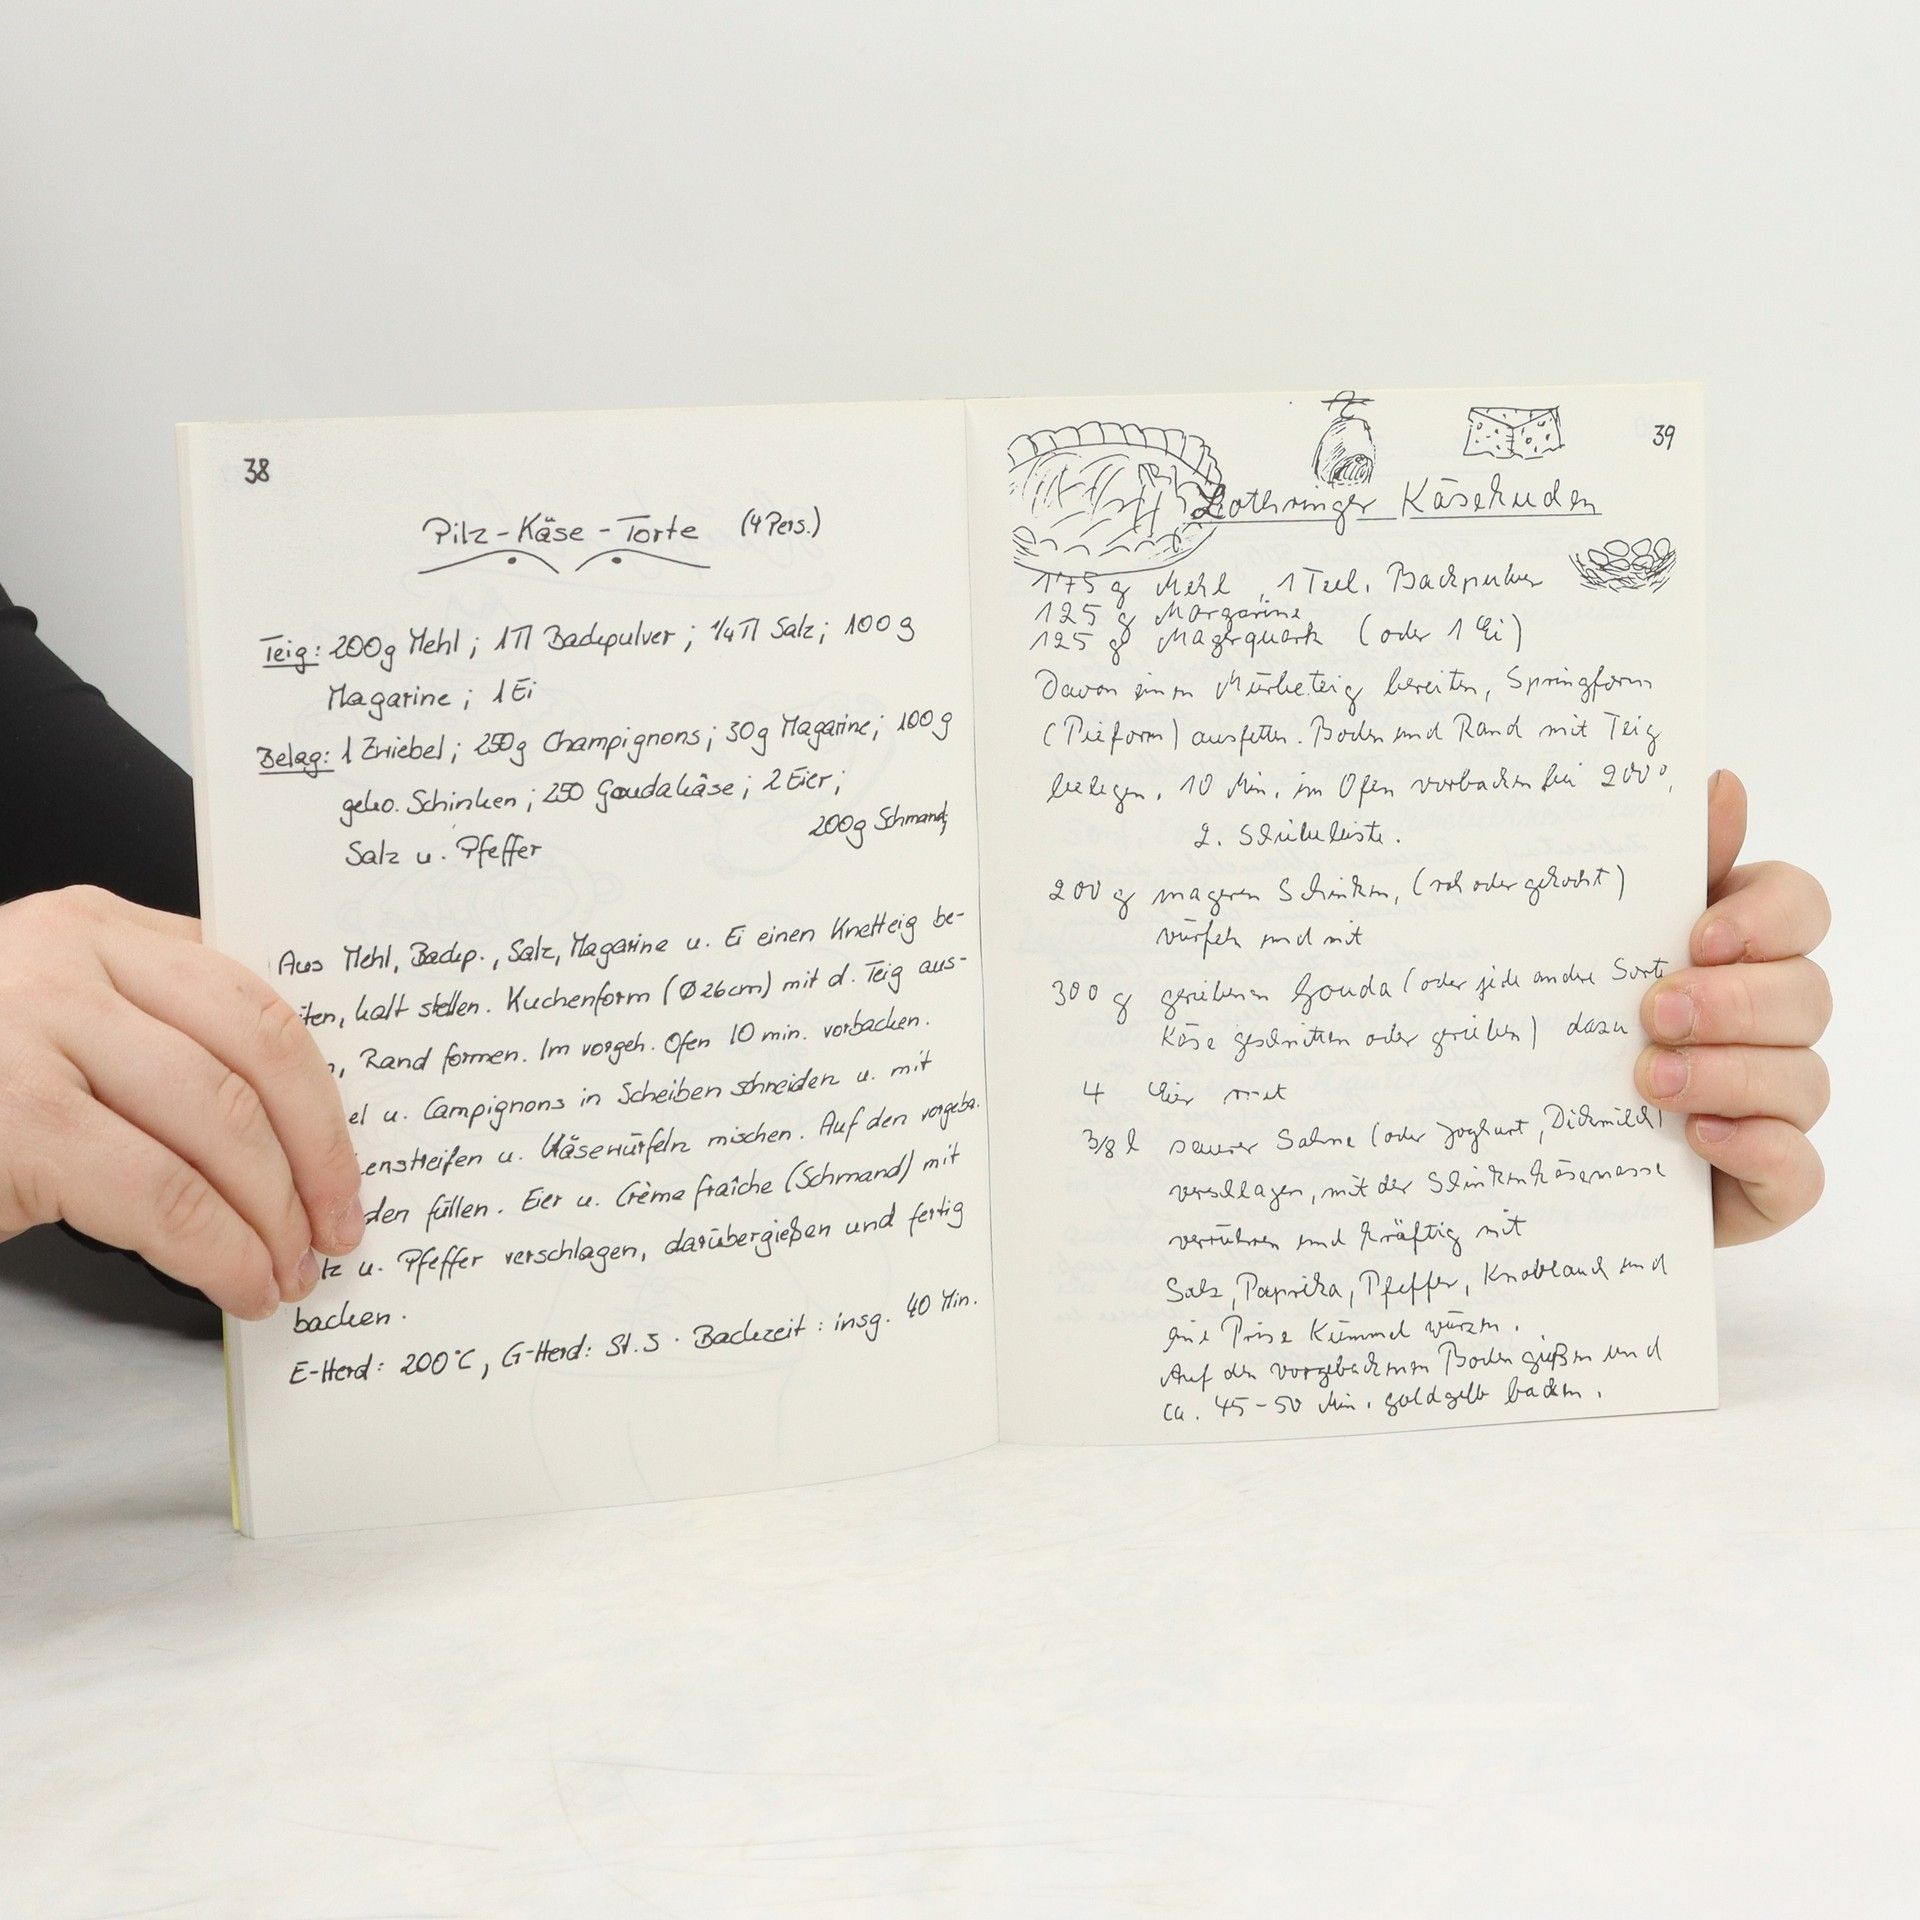 38
Pilz-Käse-Torte (4 Pers.)
Teig: 200g Mehl; 1Tl Backpulver; 1/4 Tl Salz; 100g
Magarine; 1 Ei
Belag: 1 Zwiebel; 250g Champignons; 30g Magarine; 100g
geko. Schinken; 250 Goudakäse; 2 Eier;
200g Schmand;
Salz u. Pfeffer
Aus Mehl, Backp., Salz, Magarine u. Ei einen Knetteig be-
iten, kalt stellen. Kuchenform (Ø 26cm) mit d. Teig aus-
n, Rand formen. Im vorgeh. Ofen 10 min. vorbacken.
el u. Campignons in Scheiben schneiden u. mit
enstreifen u. Käsewürfeln mischen. Auf den vorgeba.
den füllen. Eier u. Crème fraîche (Schmand) mit
lz u. Pfeffer verschlagen, darübergießen und fertig
backen.
E-Herd: 200°C, G-Herd: St. 3 · Backzeit: insg. 40 Min.
39
Lothringer Käsekuchen
175 g Mehl, 1 Teel. Backpulver
125 g Margarine
125 g Magerquark (oder 1 Ei)
Davon einen Mürbeteig bereiten, Springform
(Pieform) ausfetten. Boden und Rand mit Teig
belegen, 10 Min. im Ofen vorbacken bei 200°,
2. Schiebeleiste.
200 g mageren Schinken, (roh oder gekocht)
würfeln und mit
300 g geriebenen Gouda (oder jede andere Sorte
Käse geschnitten oder gerieben) dazu
4 Eier mit
3/8 l saurer Sahne (oder Joghurt, Dickmilch)
verschlagen, mit der Schinkenkäsemasse
verrühren und kräftig mit
Salz, Paprika, Pfeffer, Knoblauch und
eine Prise Kümmel würzen.
Auf den vorgebackenen Boden gießen und
ca. 45-50 Min. goldgelb backen.